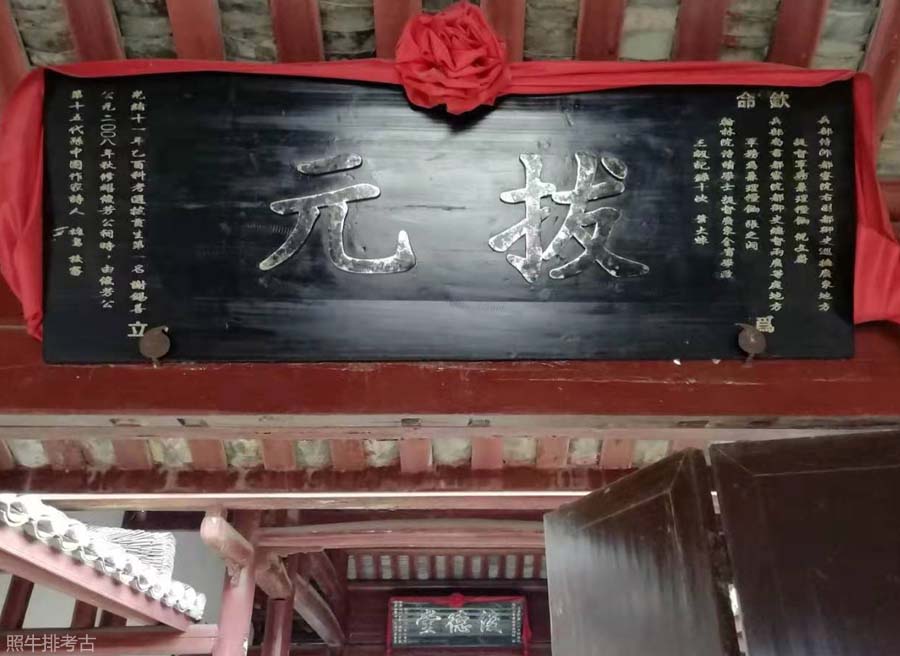 欽命
兵部侍郎都察院右副都御史巡撫廣東地方
提督軍務兼理糧餉 倪文蔚
兵部尚書都察院都御史總督兩廣等處地方
軍務兼理糧餉 張之洞
翰林院侍讀學士提督廣東全省學政
三級紀錄十次 葉大焯
爲
拔元
光緒十一年乙酉科考選拔貢生第一名 謝錫善
立
公元二〇〇八年秋修 芳公祠時，由 芳公
第十五代孫中國作家詩人 敬書
德堂
照牛排考古